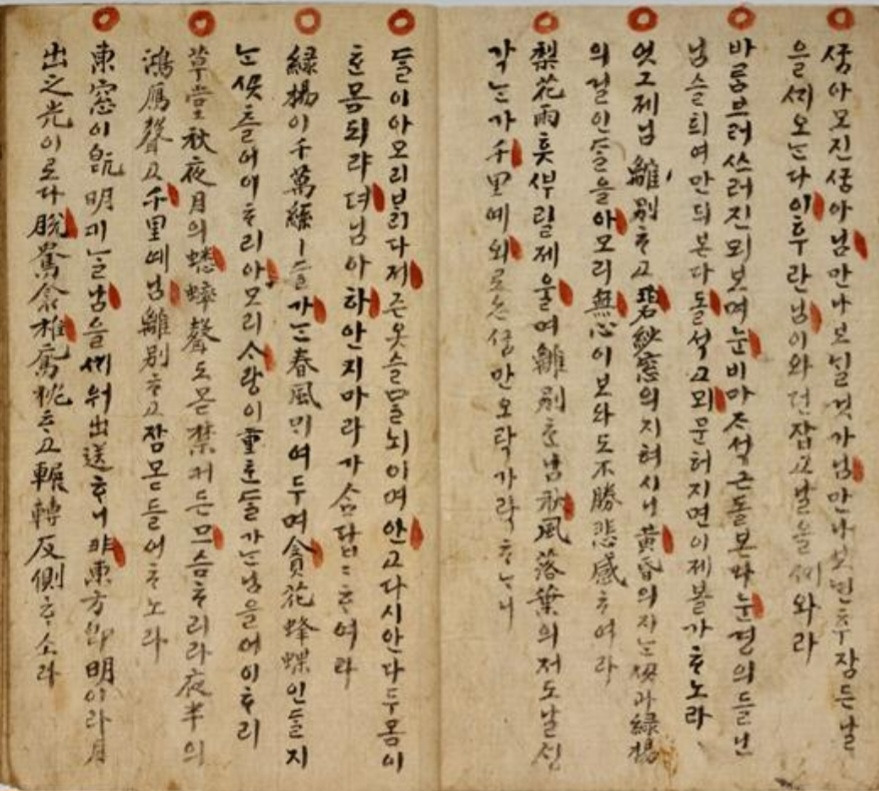 꿈아 모진 꿈아 님 만나 보닐 것가 님 만나 보면 후 잠든 날
을 ᄭᆡ오ᄂᆞᆫ다 이 후란 님이 와 던 잡고 날을 ᄭᆡ와라
바ᄅᆞᆷ 브러 쓰러진 뫼 보며 눈비 마ᄌᆞ 석은 돌 본다 눈졍의 들닌
님 슬희여 만듸 본다 돌 석고 뫼 문허지면 이제 볼가 ᄒᆞ노라
엇그제 님 離別ᄒᆞ고 碧紗窓의 지혀시니 黃昏의 지ᄂᆞᆫ ᄭᅩᆺ과 綠楊
의 걸인 ᄃᆞᆯ을 아모리 無心이 보와도 不勝悲感ᄒᆞ여라
梨花雨 훗ᄲᅮ릴 제 울며 離別ᄒᆞᆫ 님 秋風落葉의 저도 날 ᄉᆡᆼ
각ᄂᆞᆫ가 千里예 외로온 ᄭᅮᆷ만 오락가락 ᄒᆞᄂᆞ니
ᄃᆞᆯ이 아모리 ᄇᆞᆰ다 저즌 옷슬 ᄆᆞᆯ뇌이며 안고 다시 안다 두 몸이
ᄒᆞᆫ 몸 되랴 뎌 님아 하 안지 마라 가ᄉᆞᆷ 답답ᄒᆞ여라
綠楊이 千萬縷ㅣᆫ들 가ᄂᆞᆫ 春風 ᄆᆡ여 두며 貪花蜂蝶인들 지
ᄂᆞᆫ ᄭᅩᆺ츨 어이 ᄒᆞ리 아모리 ᄉᆞ랑이 重ᄒᆞᆫ들 가ᄂᆞᆫ 님을 어이 ᄒᆞ리
草堂 秋夜月의 蟋蟀聲도 못 禁커든 므슴 ᄒᆞ리라 夜半의
鴻鴈聲고 千里예 님 離別ᄒᆞ고 잠 못 들어 ᄒᆞ노라
東窓이 旣明커ᄂᆞᆯ 님을 ᄭᆡ워 出送ᄒᆞ니 非東方卽明이라 月
出之光이로다 脫鴦衾 推鴦枕ᄒᆞ고 輾轉反側ᄒᆞ소라